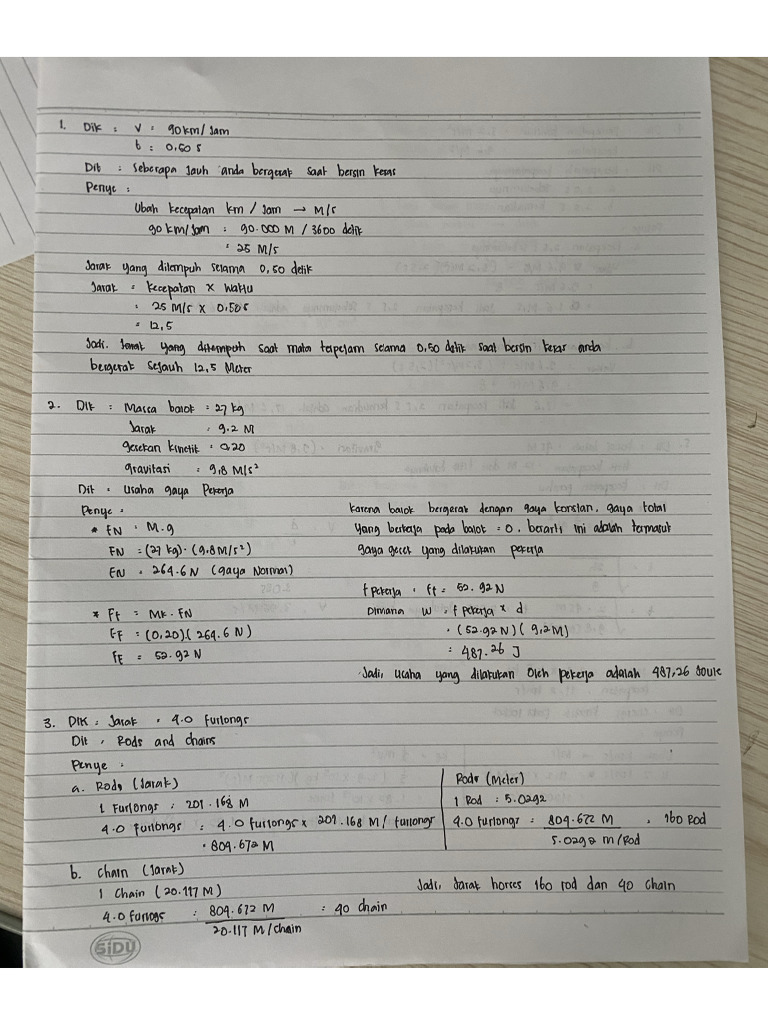 1. Dik : V : 90 km/Jam
t : 0,50 s
Dit : Seberapa Jauh anda bergerak saat bersin keras
Penye :
Ubah kecepatan km / Jam → M/s
90 km/Jam : 90.000 M / 3600 detik
: 25 M/s
Jarak yang ditempuh selama 0,50 detik
Jarak : kecepatan x waktu
: 25 M/s x 0,50s
= 12,5
Jadi. Jarak yang ditempuh saat mata terpejam selama 0,50 detik saat bersin keras anda
bergerak sejauh 12,5 Meter
2. Dik : Massa balok : 27 kg
Jarak : 9.2 M
gesekan kinetik : 0.20
gravitasi : 9,8 M/s²
Dit : Usaha gaya Pekerja
Penye :
* FN : M.g
FN = (27 kg) . (9.8 M/s²)
FN = 264.6 N (gaya Normal)
* Ff : Mk . FN
Ff : (0,20)(264.6 N)
Ff = 52.92 N
karena balok bergerak dengan gaya konstan, gaya total
Yang bekerja pada balok = 0. berarti ini adalah termasuk
gaya gesek yang dilakukan pekerja
f Pekerja : ff = 52.92 N
Dimana W : f pekerja x d
: (52.92 N)( 9,2 M)
: 487.26 J
Jadi, usaha yang dilakukan Oleh pekerja adalah 487,26 Joule
3. Dik : Jarak : 4.0 furlongs
Dit : Rods and chains
Penye :
a. Rods (Jarak)
1 Furlongs : 201.168 M
4.0 furlongs : 4.0 furlongs x 201.168 M / furlongs
: 804.672 M
Rods (Meter)
1 Rod : 5.0292
4.0 furlongs : 804.672 M : 160 Rod
5.0292 m/Rod
b. Chain (Jarak)
1 Chain (20.117 M)
4.0 furlogs : 804.672 M : 40 chain
20.117 M/chain
Jadi, Jarak horses 160 rod dan 40 chain
SiDU